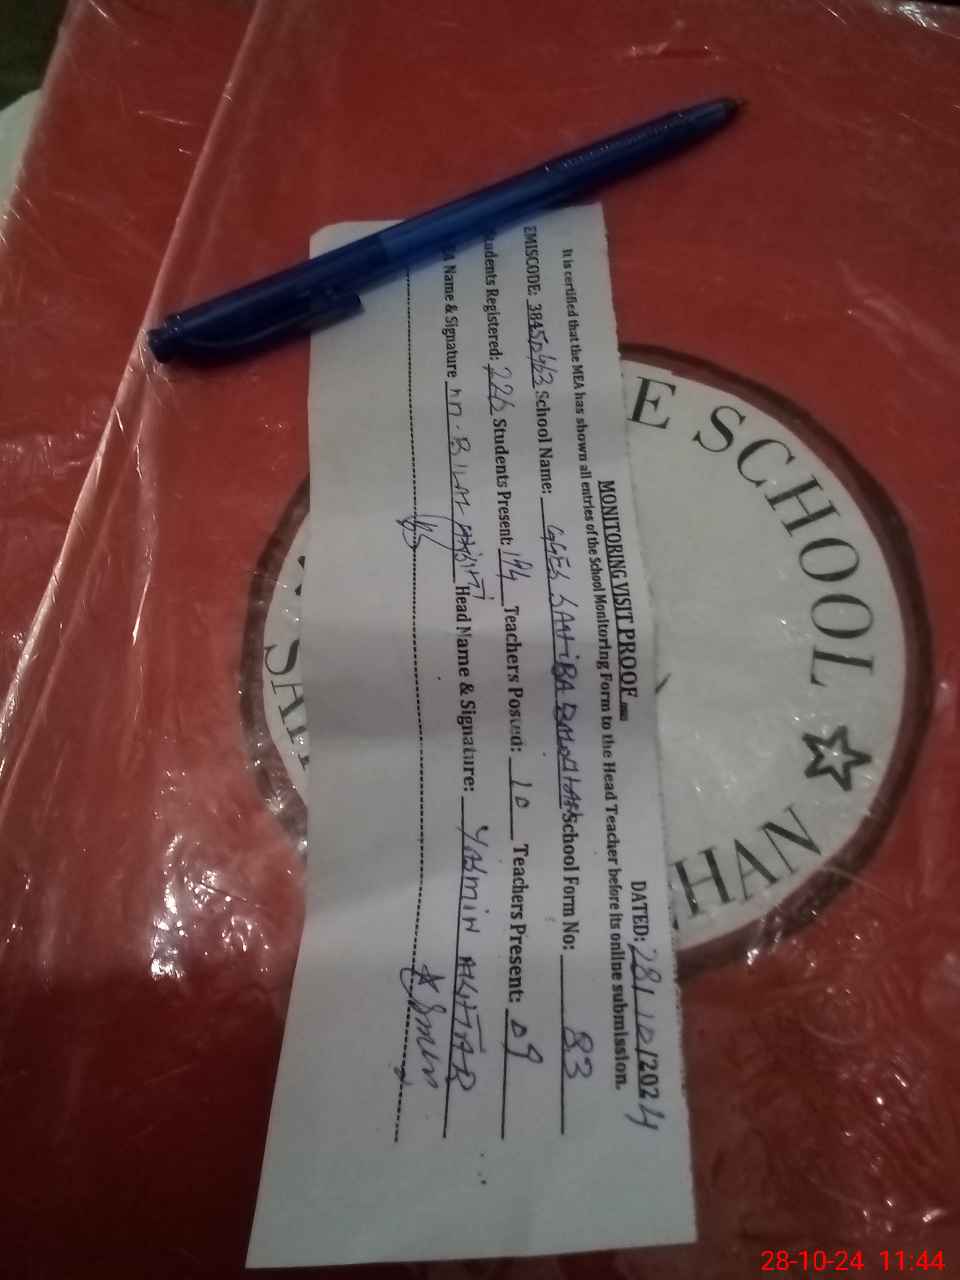 MONITORING VISIT PROOF
DATED: 28/10/2024
It is certified that the MEA has shown all entries of the School Monitoring Form to the Head Teacher before its online submission.
EMISCODE: School Name: School Form No: 83
Students Registered: 226 Students Present: 194 Teachers Posted: 10 Teachers Present: 09
Name & Signature M. BILAL Head Name & Signature: YASMIN AKHTAR
E SCHOOL ☆
HAN
28-10-24 11:44